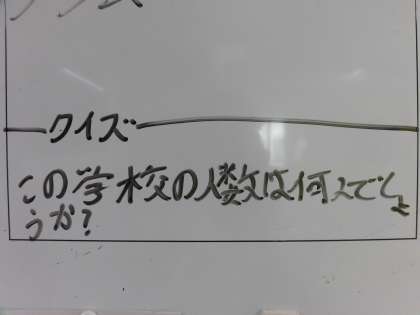 クイズ
この学校の人数は何人でしょ
うか?